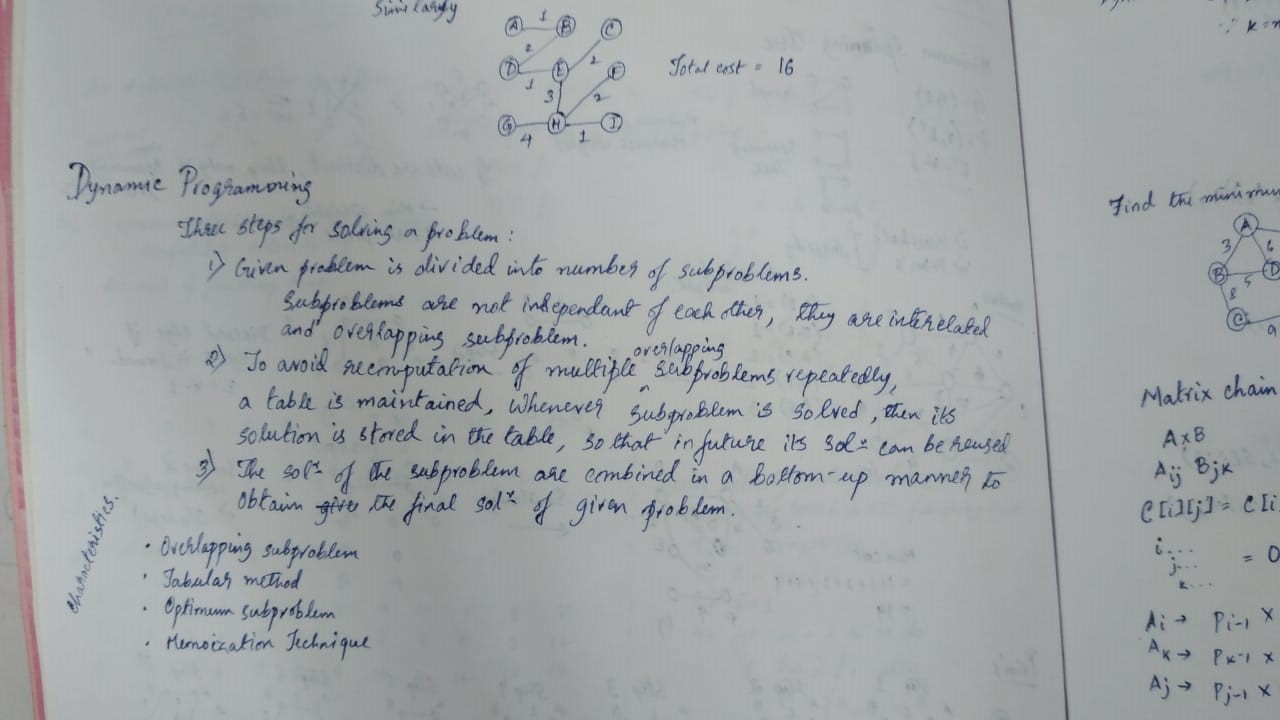 Similarly
A 1 B C
2 2
D 1 E F
3 2
G 4 H 1 I
Total cost = 16
Dynamic Programming
Three steps for solving a problem :
1) Given problem is divided into number of subproblems.
Subproblems are not independant of each other, they are interelated
and overlapping subproblem.
overlapping
2) To avoid recomputation of multiple ^ subproblems repeatedly,
a table is maintained, Whenever subproblem is solved, then its
solution is stored in the table, so that in future its solⁿ can be reused
3) The solⁿ of the subproblem are combined in a bottom-up manner to
Obtain the final solⁿ of given problem.
Characteristics.
• Overlapping subproblem
• Tabular method
• Optimum subproblem
• Memoization Technique
∵ k =
Find the minimu
A
3 6
B 5 D
8
C 9
Matrix chain
A x B
Aij Bjk
C[i][j] = C[i
i....
j... = 0
k...
Ai → Pi-1 x
Ak → Pk-1 x
Aj → Pj-1 x